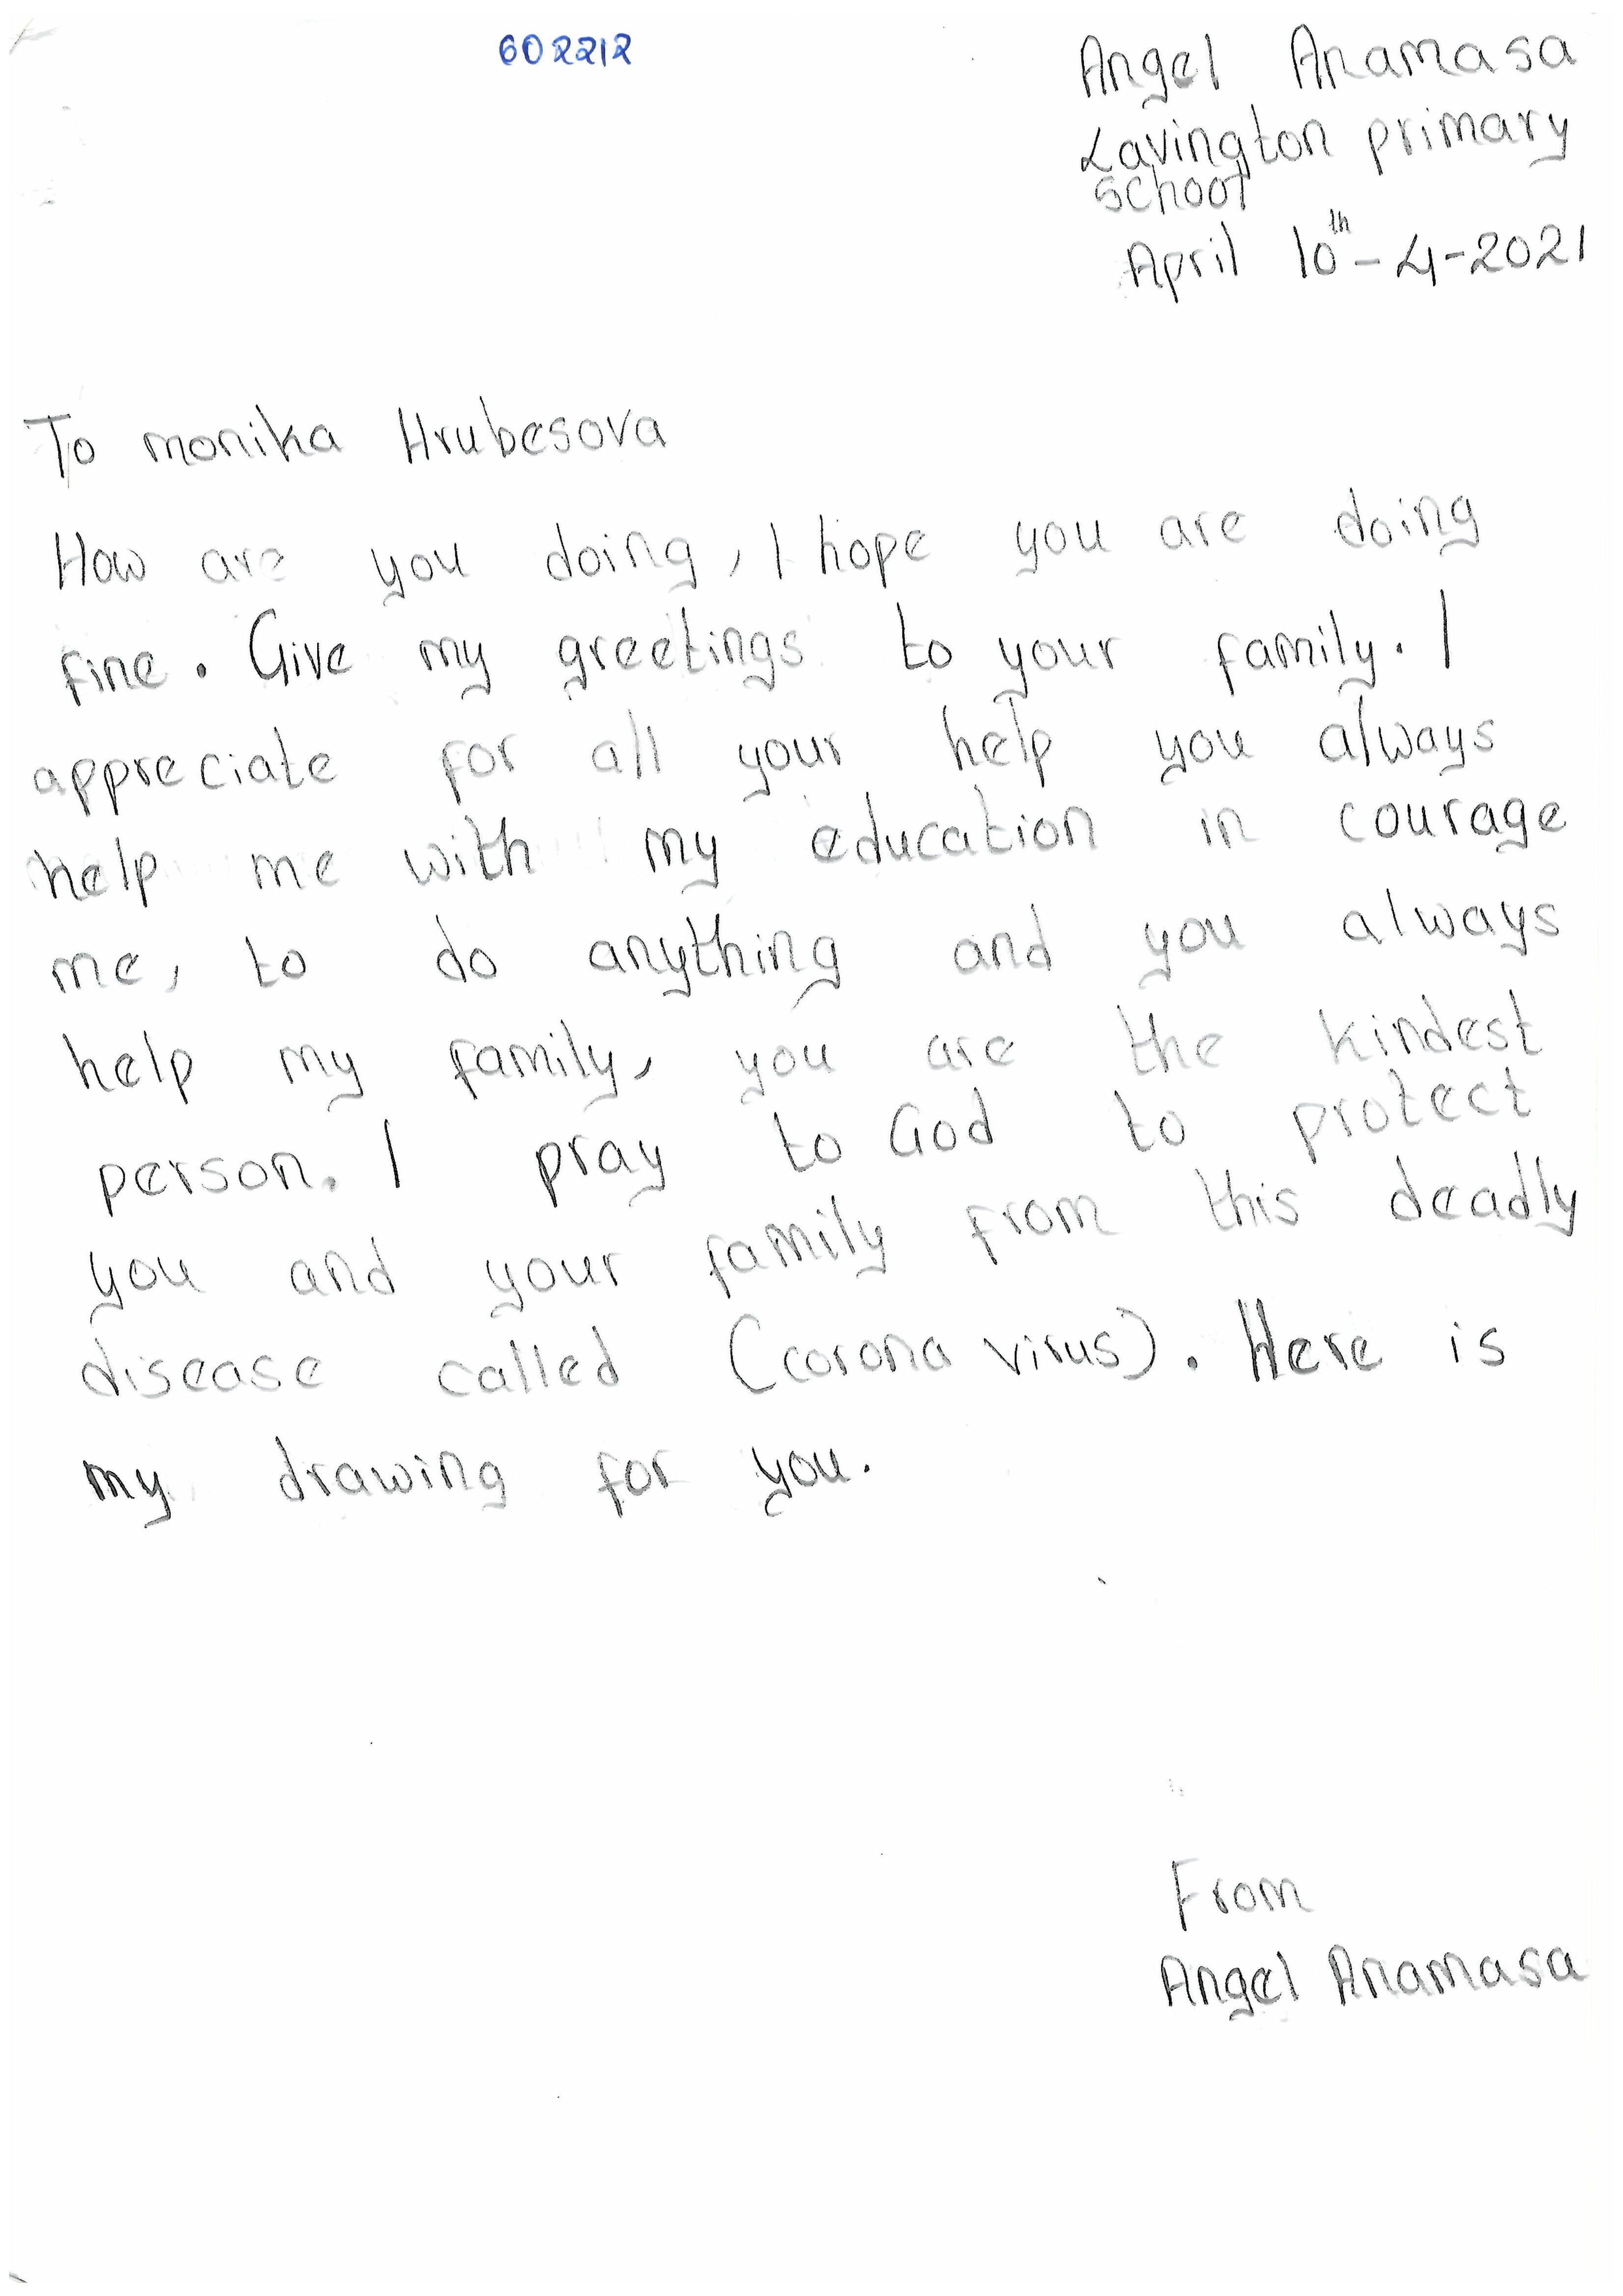 602212
Angel Anamasa
Lavington primary
school
April 10th - 4 - 2021
To monika Hrubesova
How are you doing, I hope you are doing
fine. Give my greetings to your family. I
appreciate for all your help you always
help me with my education in courage
me, to do anything and you always
help my family, you are the kindest
person. I pray to God to protect
you and your family from this deadly
disease called (corona virus). Here is
my drawing for you.
From
Angel Anamasa